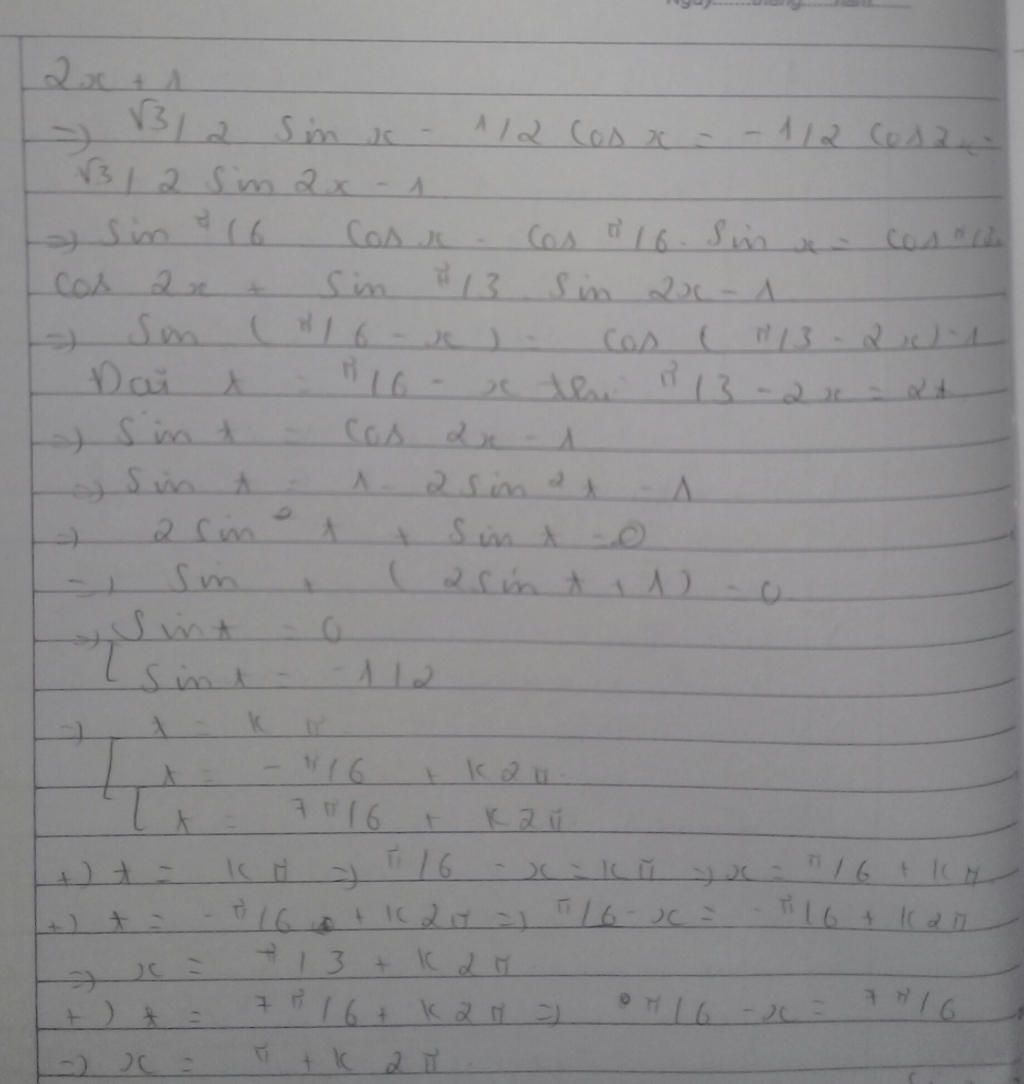 Ngày......tháng......năm......
2x + 1
=> √3/2 sin x - 1/2 cos x = -1/2 cos2x -
√3/2 sin 2x - 1
=> sin π/6 cos x - cos π/6. sin x = cos π/3
cos 2x + sin π/3 sin 2x - 1
=> sin (π/6 - x) = cos (π/3 - 2x) - 1
t = π/6 - x π/3 - 2x = 2t
=> sin t = cos 2x - 1
=> sin t = 1 - 2sin²t - 1
=> 2sin² t + sin t = 0
=> sin t (2sin t + 1) = 0
=> sin t = 0
[ sin t = -1/2
=> t = k π
[ t = - π/6 + k2π
[ t = 7π/6 + k2π
+) t = kπ => π/6 - x = kπ => x = π/6 + kπ
+) t = -π/6 + k2π => π/6 - x = -π/6 + k2π
=> x = π/3 + k2π
+) t = 7π/6 + k2π => π/6 - x = 7π/6
=> x = π + k2π